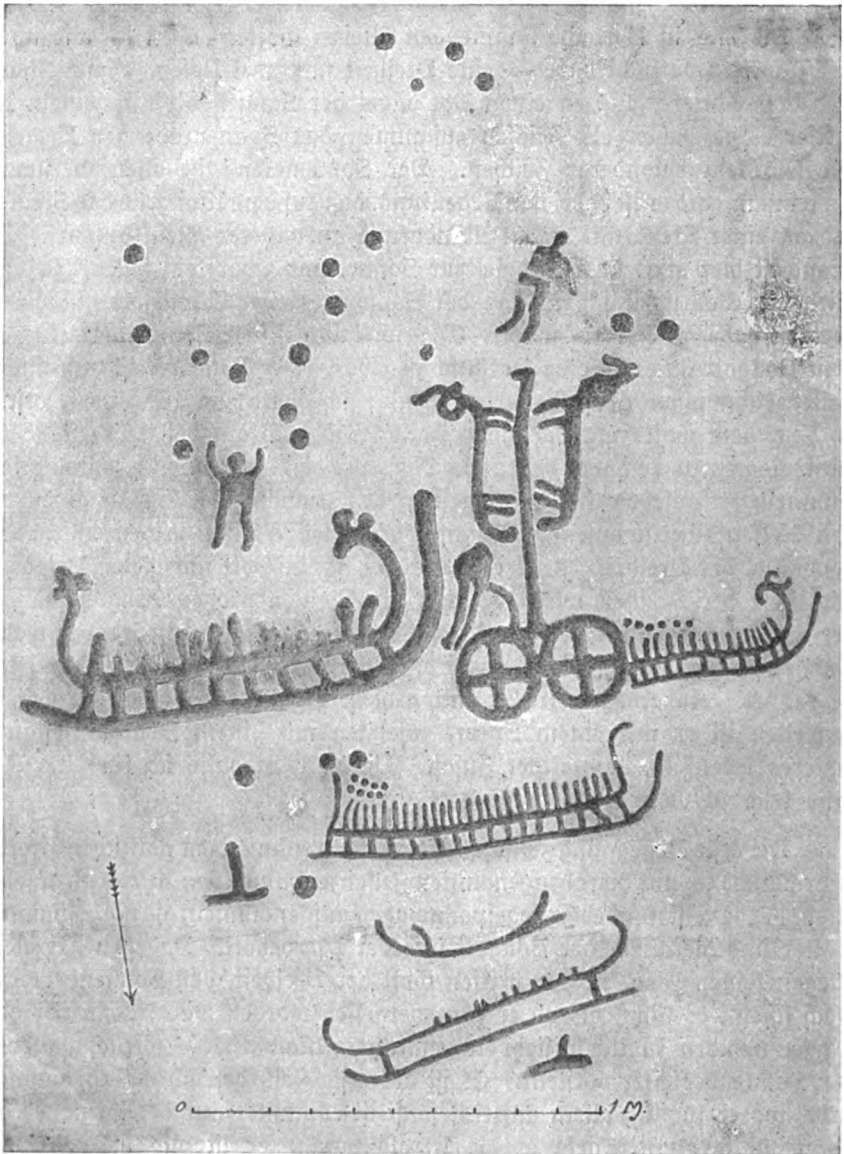 0 1 M.